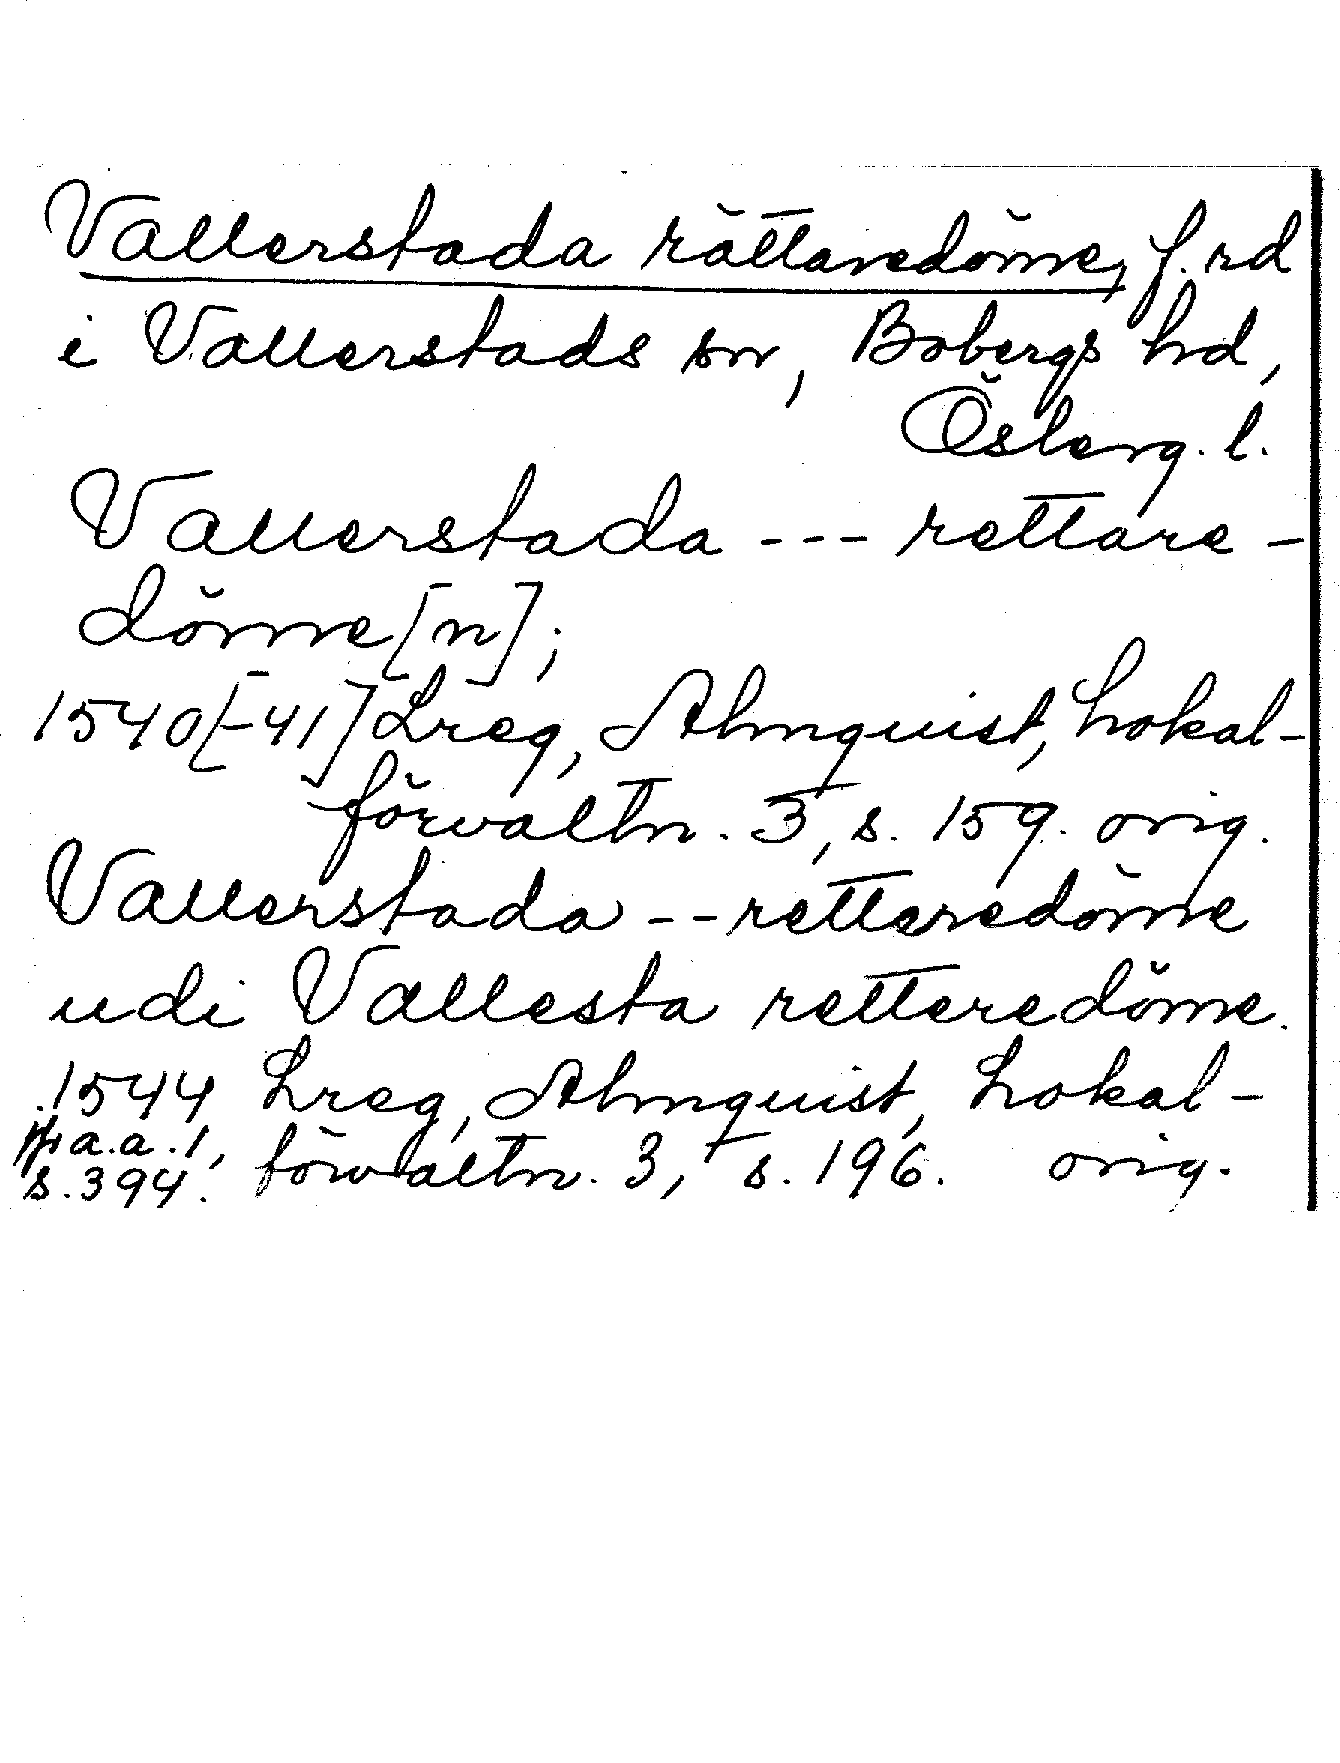 Vallerstada rättaredöme, f. rd
i Vallerstads sn, Bobergs hd,
Österg. l.
Vallerstada --- rettare-
döme[n];
1540[-41] Lreg, Almquist, Lokal-
förvaltn. 3, s. 159. orig.
Vallerstada -- retteredöme
udi Vallesta retteredöme.
1544 Lreg, Almquist, Lokal-
a.a. 1, förvaltn. 3, s. 196. orig.
s. 394.